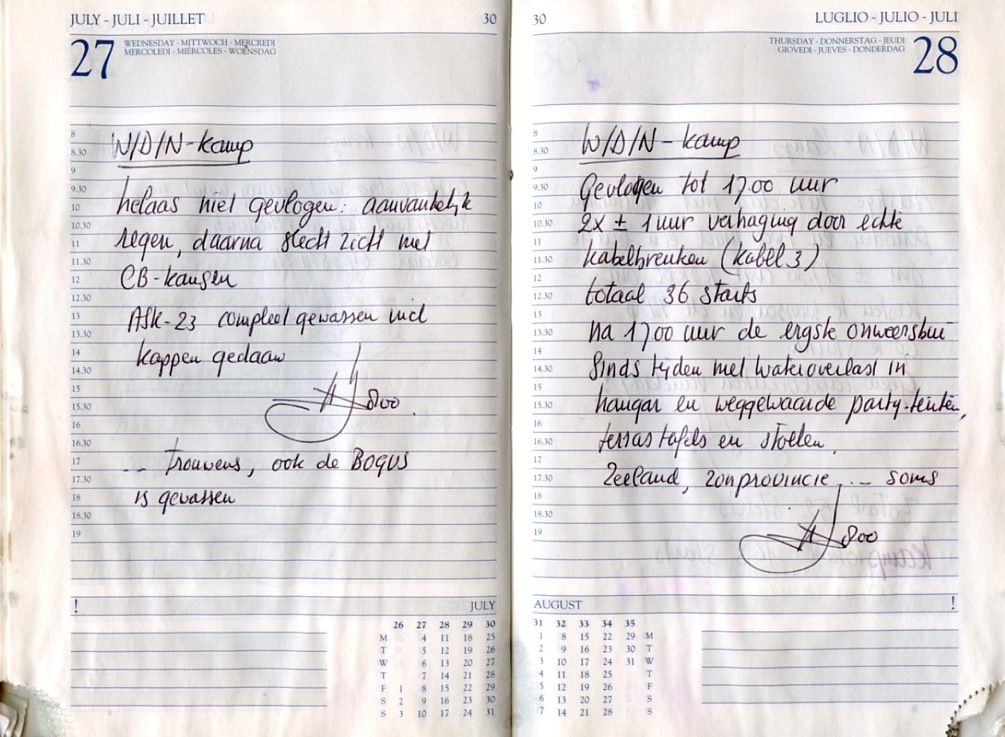 JULY - JULI - JUILLET 30
27 WEDNESDAY - MITTWOCH - MERCREDI
MERCOLEDI - MIÉRCOLES - WOENSDAG
8
8.30
9
9.30
10
10.30
11
11.30
12
12.30
13
13.30
14
14.30
15
15.30
16
16.30
17
17.30
18
18.30
19
W/D/N-kamp
helaas niet gevlogen: aanvankelijk
regen, daarna slecht zicht met
CB-kansen
ASK-23 compleet gewassen incl
kappen gedaan
... trouwens, ook de BOGUS
is gewassen
! JULY
26 27 28 29 30
M 4 11 18 25
T 5 12 19 26
W 6 13 20 27
T 7 14 21 28
F 1 8 15 22 29
S 2 9 16 23 30
S 3 10 17 24 31
30 LUGLIO - JULIO - JULI
THURSDAY - DONNERSTAG - JEUDI 28
GIOVEDI - JUEVES - DONDERDAG
8
8.30
9
9.30
10
10.30
11
11.30
12
12.30
13
13.30
14
14.30
15
15.30
16
16.30
17
17.30
18
18.30
19
W/D/N-kamp
Gevlogen tot 17.00 uur
2x ± 1 uur vertraging door echte
kabelbreuken (kabel 3)
totaal 36 starts
na 17.00 uur de ergste onweersbui
sinds tijden met wateroverlast in
hangar en weggewaaide party-tenten,
terras tafels en stoelen.
Zeeland, zonprovincie ... soms
AUGUST !
31 32 33 34 35
1 8 15 22 29 M
2 9 16 23 30 T
3 10 17 24 31 W
4 11 18 25 T
5 12 19 26 F
6 13 20 27 S
7 14 21 28 S